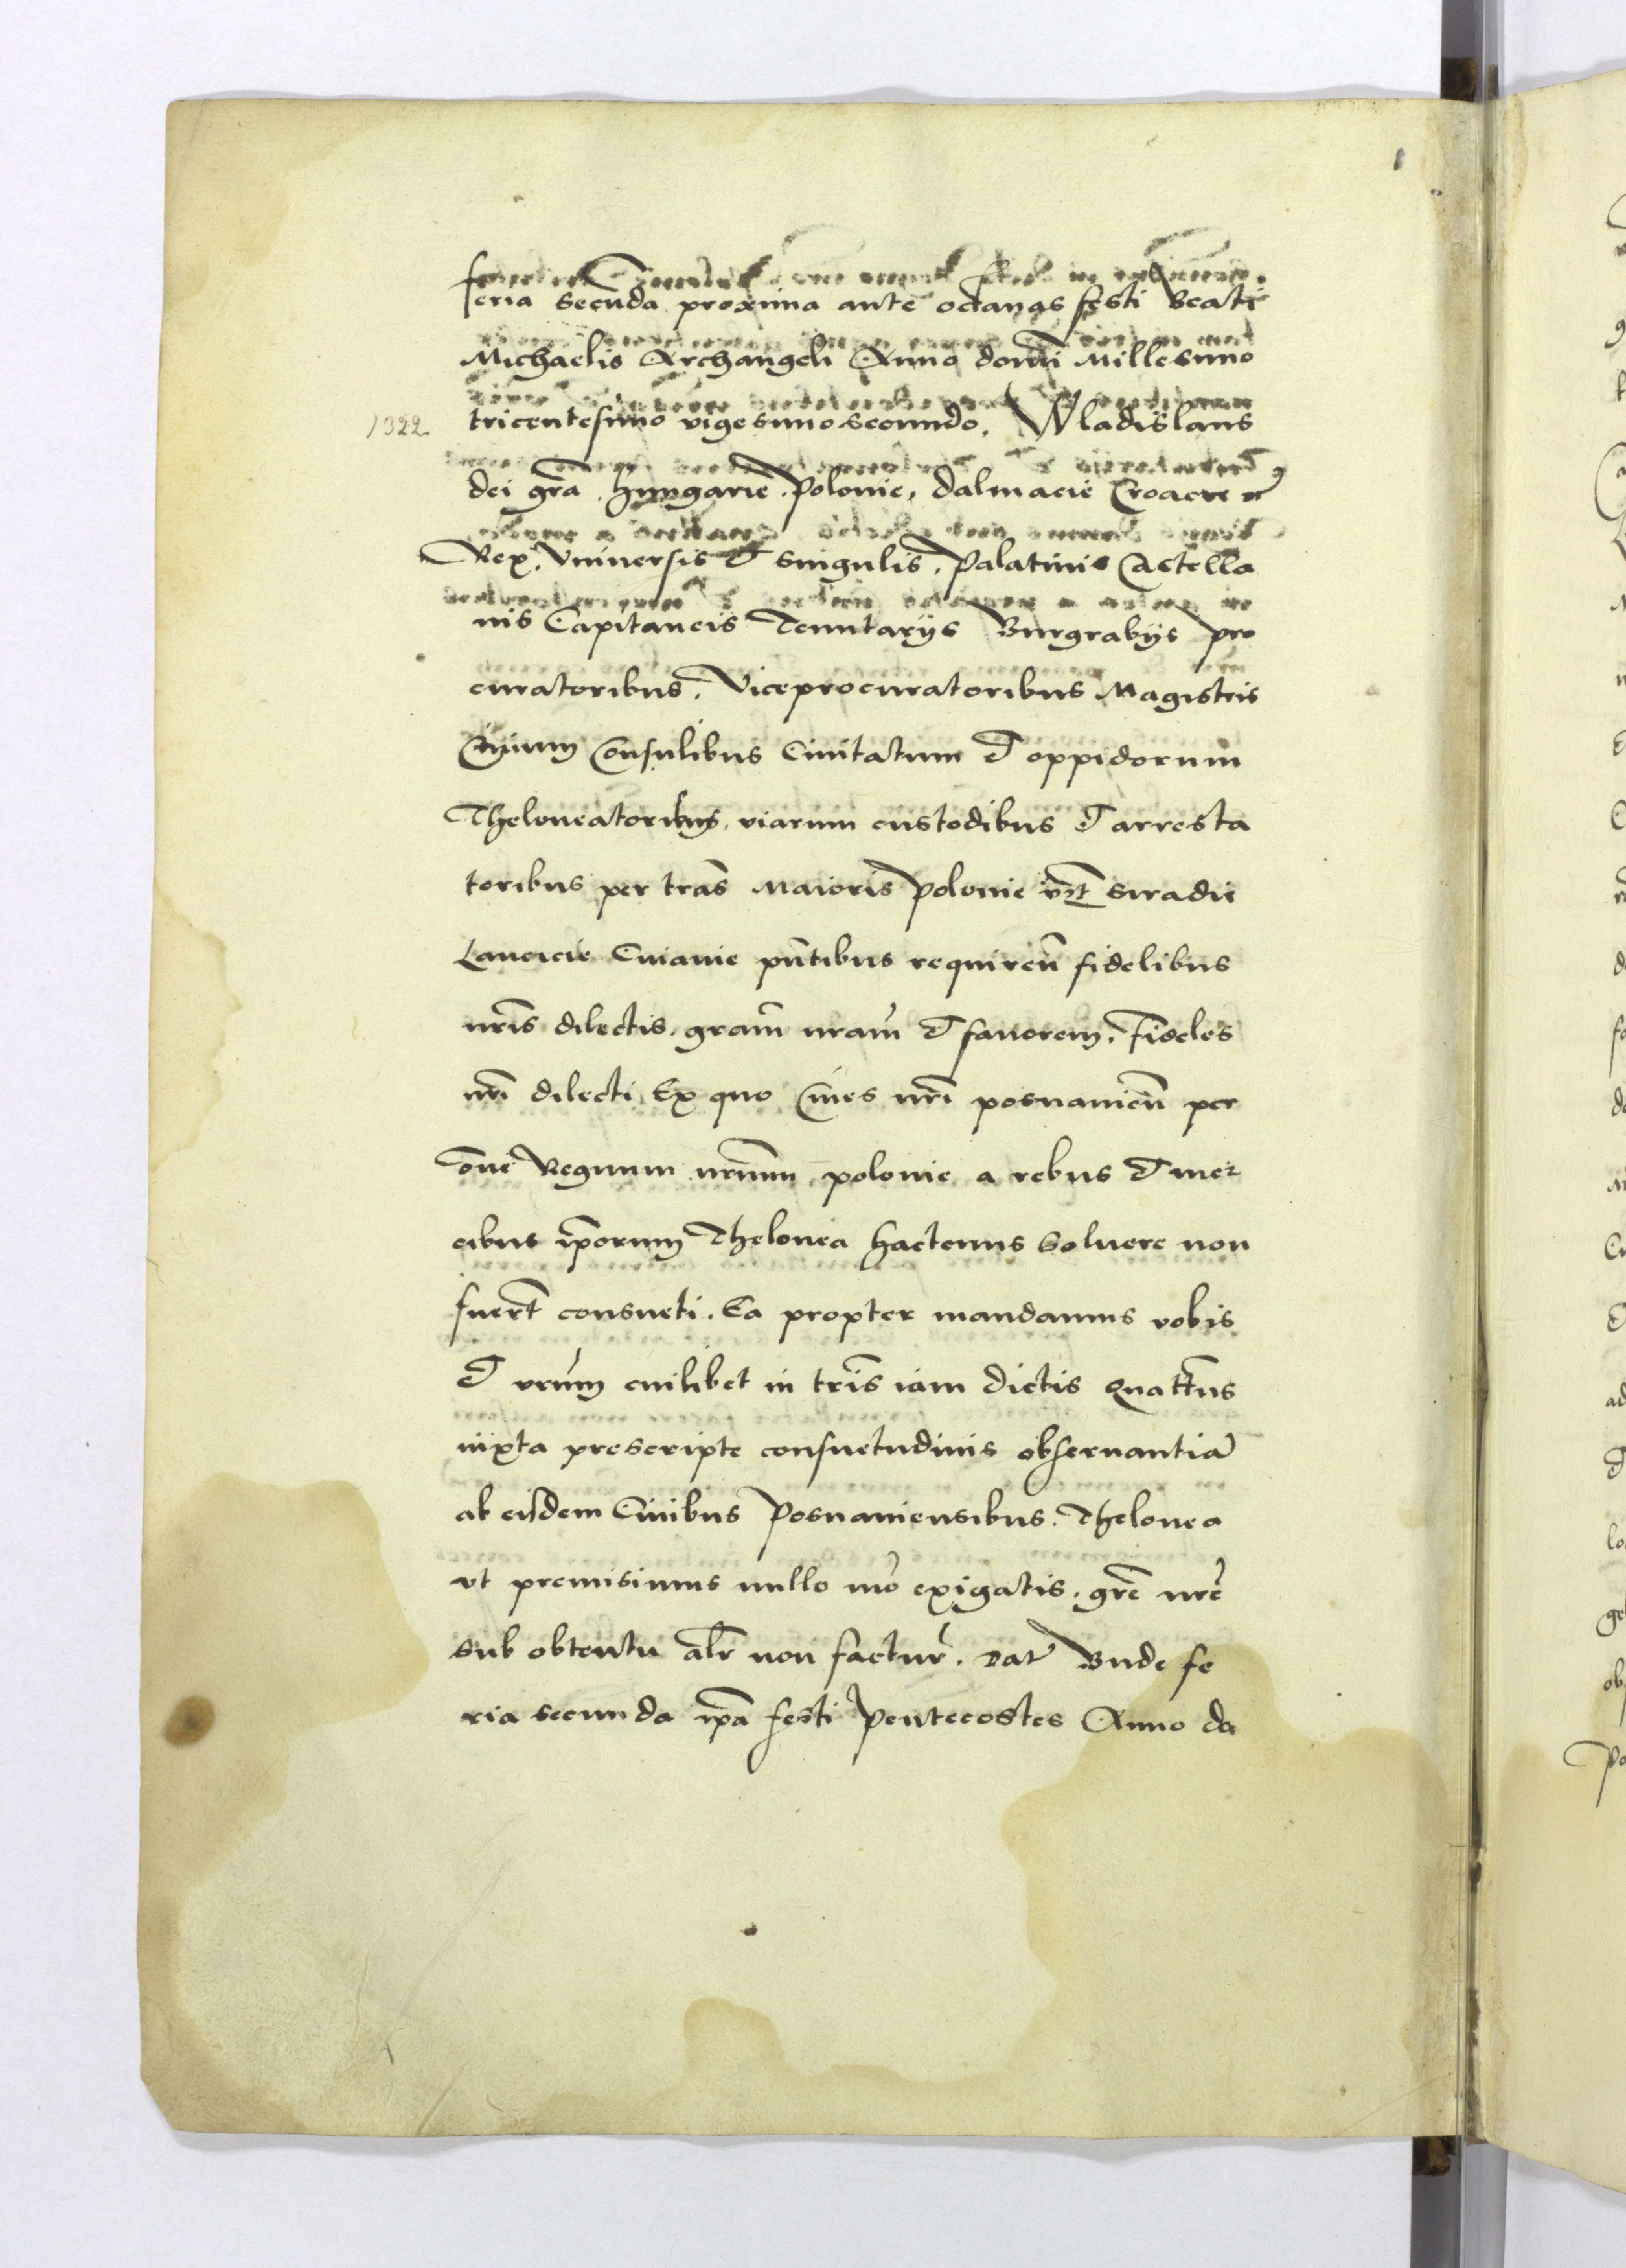 feria secūda proxima ante octauas festi Beati
Michaelis Archangeli Anno domī Millesimo
1322. tricentesimo vigesimosecundo. Wladislaus
dei grā. Hungarie. Polonie, Dalmacie Croacie
Rex. Vniuersis et singulis. Palatinis Castella
nis Capitaneis Tenutarijs Burgrabijs pro
curatoribus. Viceprocuratoribus Magistris
Ciuium Consulibus Ciuitatum et oppidorum
Theloneatoribus. viarum custodibus et arresta
toribus per trās Maioris Polonie vz̄t Siradie
Lancicie Cuiauie pn̄tibus requiren̄ fidelibus
nr̄is dilectis. grām nrām et fauorem. Fideles
nr̄i dilecti Ex quo Ciues nr̄i posnanien̄ per
om̄e Regnum nr̄um polonie a rebus et mer
cibus ip̄orum Thelonea hactenus soluere non
fuer̄t consueti. Ea propter mandamus vobis
et vr̄um cuilibet in tr̄is iam dictis quat̄nus
iuxta prescripte consuetudinis obseruantiā
ab eisdem Ciuibus Posnaniensibus. Thelonea
vt premisimus nullo mō exigatis. grē nrē
sub obtentu alr̄ non factur̄. Dat̄ Bude fe
ria secunda ip̄a festi Pentecostes Anno do